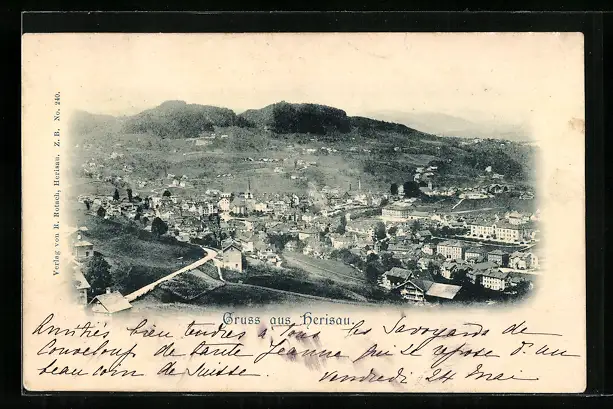 Verlag von R. Rotsch, Herisau. Z. B. No. 240.
Gruss aus Herisau.
Amitiés bien tendres à tous les Savoyards de
de tante Jeanne qui se repose d'un
beau coin de Suisse. Vendredi 24 Mai